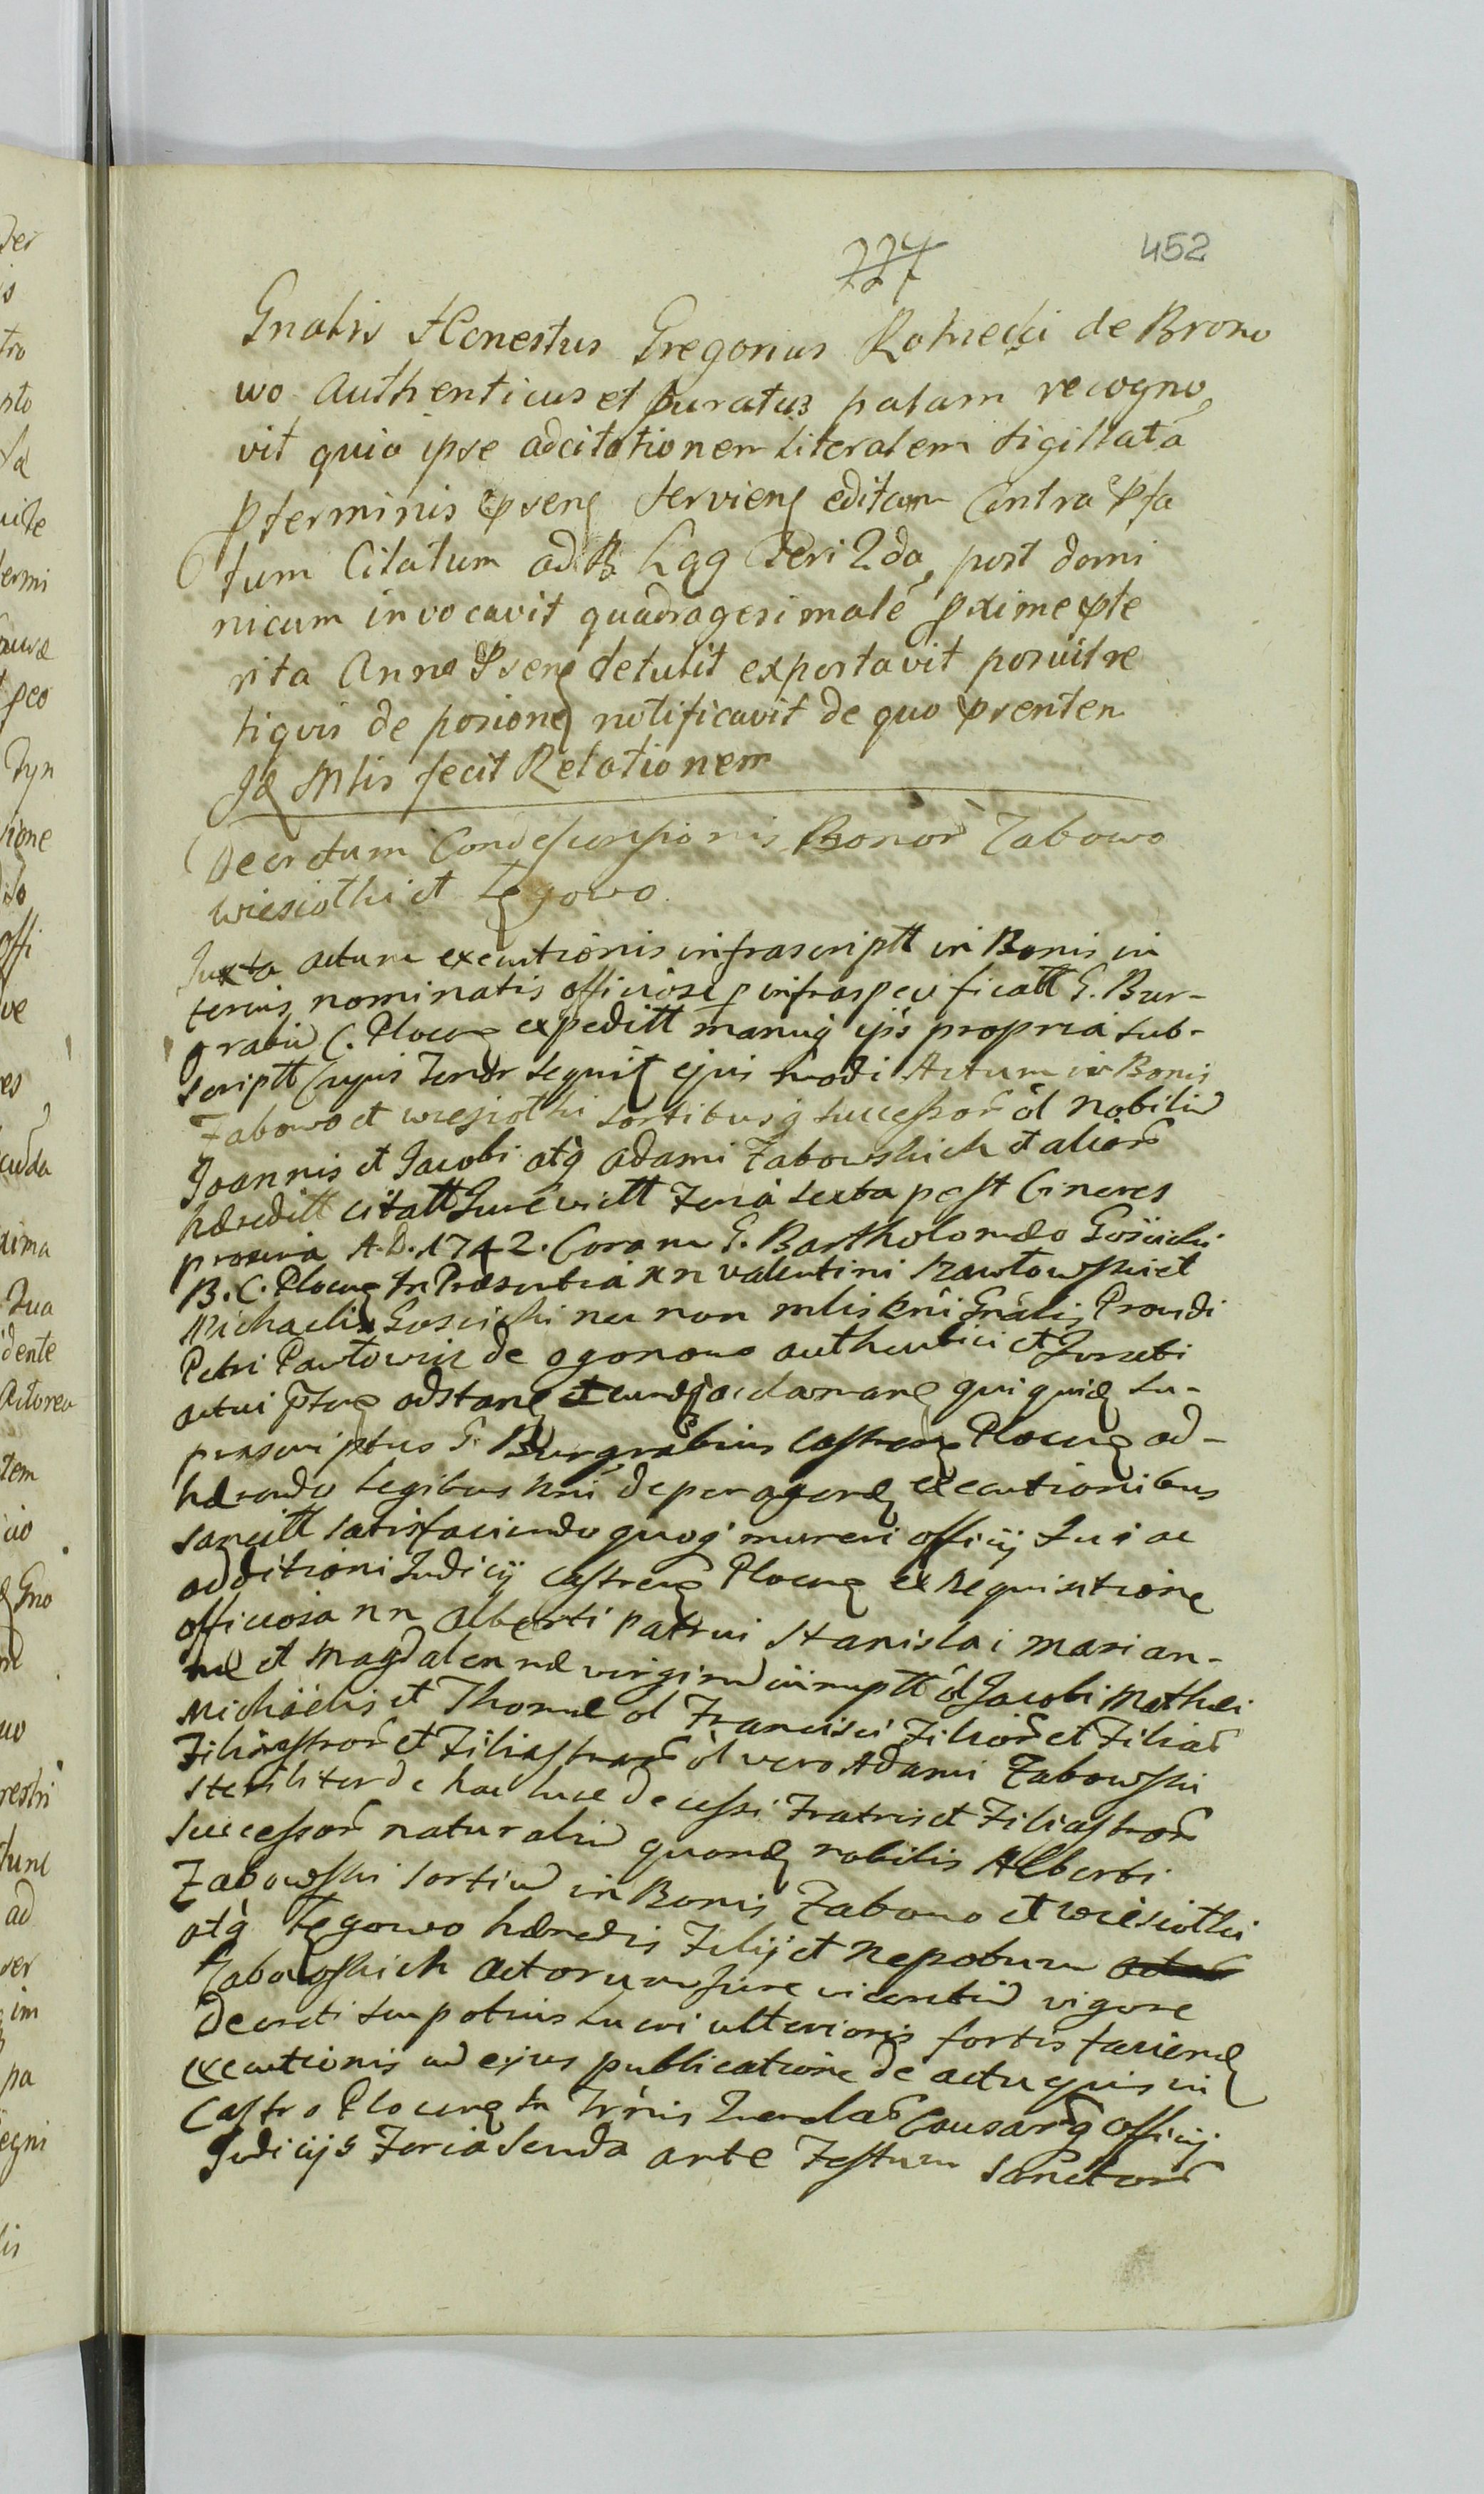 452
Gnalis Honestus Gregorius de Brono
wo Authenticus et Juratus palam recogno
vit quia ipse adcitationem literalem sigillatã
p terminis editam Contra
tum Citatum ad Feri 2da post domi
nicum invocavit quadragesimale pxime pte
rita Anno detulit exportavit posuit re
liquis de posione notificavit de quo
Mlis fecit Relationem
Decretum Condescensionis Bonor Zabowo
wiesiothi et Łęgowo.
Juxta actum executionis infrascriptt in Bonis in
terius nominatis officiose p infraspecificatt G. Bur-
grabiu C. Plocens expeditt manuq ejis propria sub-
scriptt Cujus Tenor sequit ejus modi Actum in Bonis
Zabowo et wiesiothi sortibusq successor ol Nobiliu
Joannis et Jacobi atq adami Zabowskich et alior
hæreditt citatt Jure victt Feria sexta post Cineres
proxima A.D. 1742. Coram G. Bartholomæo Gosiicki
B. C. Plocens in Præsentia nn valentini et
Michaelis Gosciki nec non mlis Rni Gnalis Providi
Petri Pawłowicz de ogonowo authentici et Jurati
actui adstane et qui quide su-
prascriptus G. Burgrabius castrens Plocens ad-
hærendo legibus Rni de peragend executionibus
sancitt satisfaciendo quoq muneri officij sui ac
additioni Judicij castrens Plocens ex Requisitione
officiosa nn Alberti patrui Stanislai marian-
næ et Magdalennæ virginu ol Jacobi Mathæi
Michaelis et Thomæ ol Francisci Filior et Filiar
Filiastror et Filiastrar ol vero Adami Zabowski
steriliter de hac luce decessi Fratris et Filiastror
successor naturaliu quond nobilis Alberti
Zabowski sortiu in Bonis Zabowo et wiesiothi
atq Łęgowo hæredis Filij et Nepotum
Zabowskich Actorum Jure vicentiu vigore
Decreti lucri ulterioris fortis faciend
executionis ad ejus publicatione de actu quis in
Castro Plocens in Trnis Querelar Causarq Officij
Judicijs Feria Secuda ante Festum Sanctor